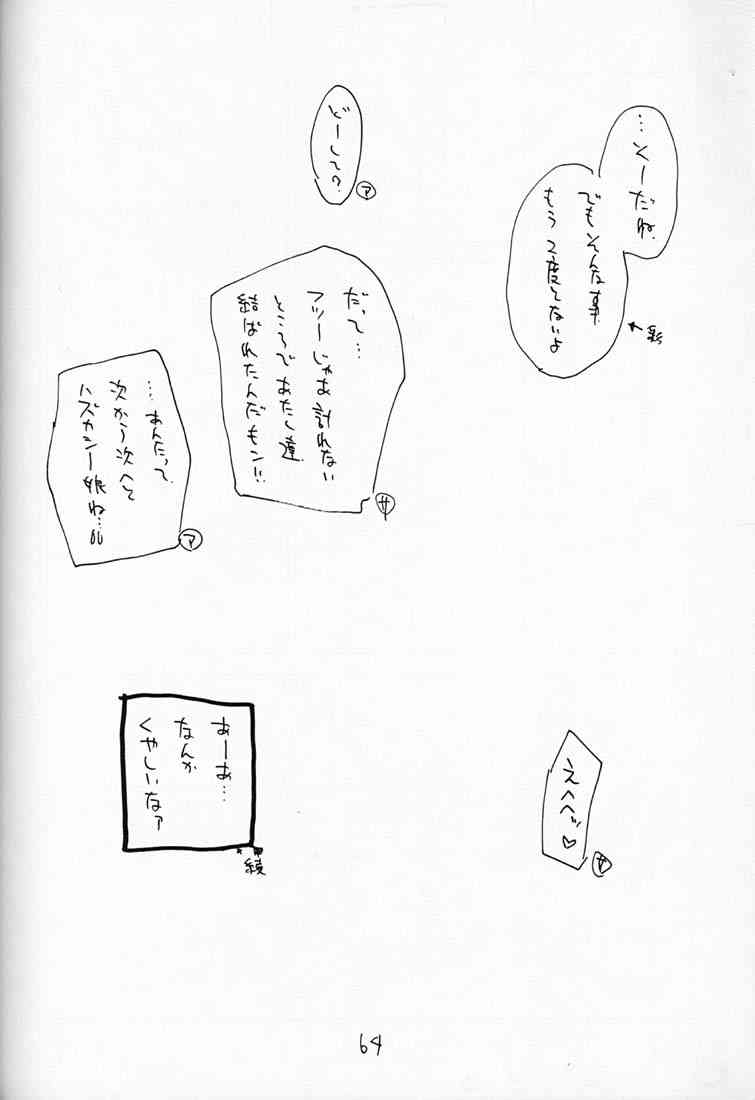 …そーだね
でもそんな事
もう2度とないよ
どーして?
ア
だって…
フツーじゃあ計れない
ところであたし達
結ばれたんだモン!!
サ
…あんたって
次から次へと
ハズカシー娘ね…
ア
えへへッ♡
サ
あーあ…
なんか
くやしいなァ
64